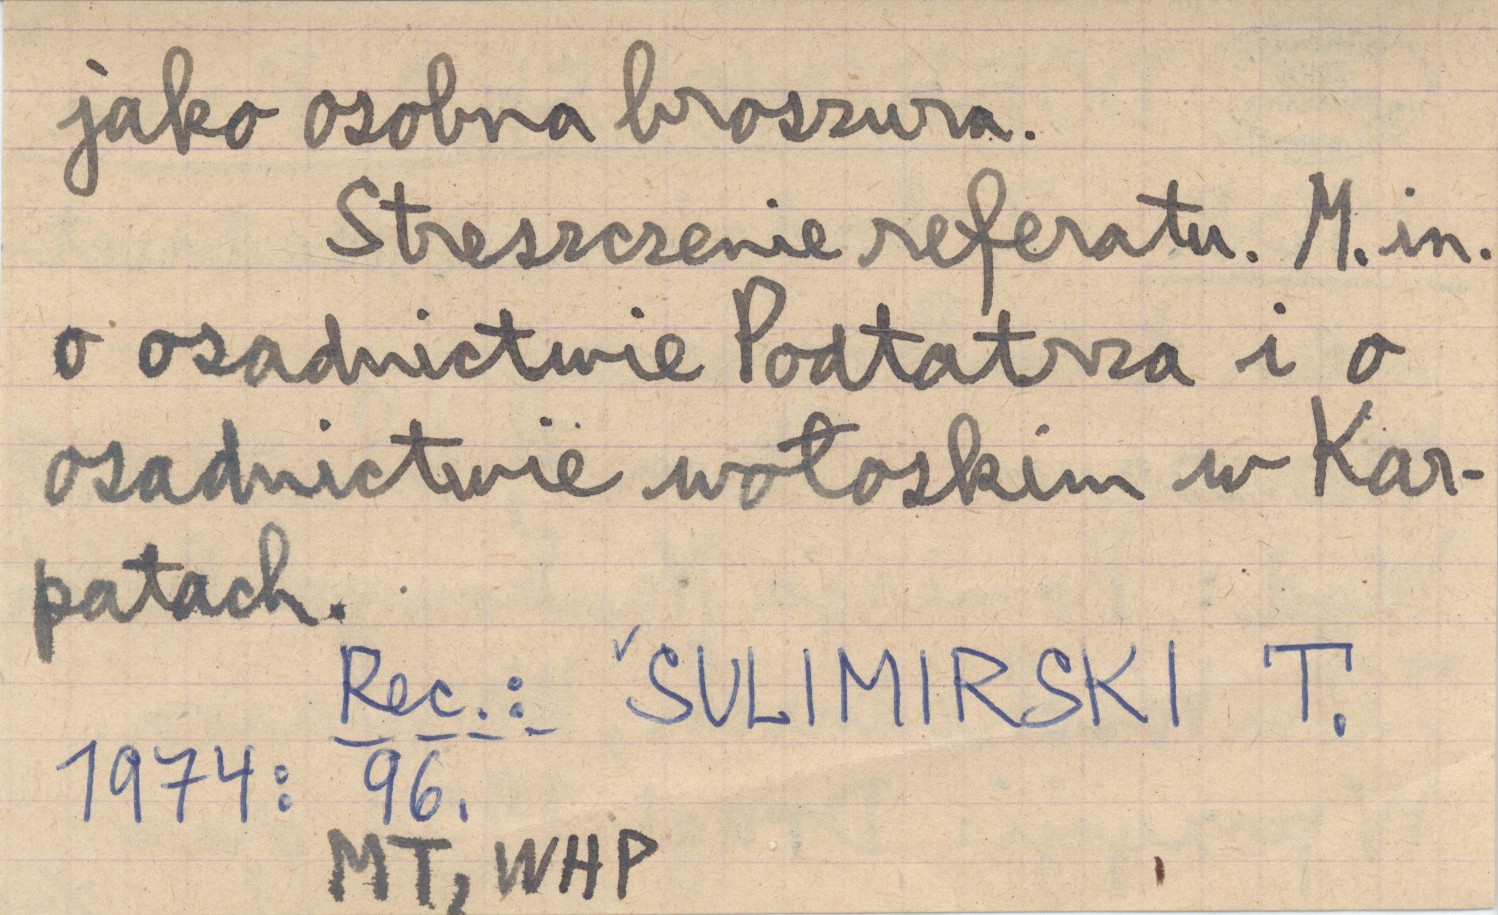 jako osobna broszura.
Streszczenie referatu. M. in.
o osadnictwie Podtatrza i o
osadnictwie wołoskim w Kar-
patach.
Rec.: SULIMIRSKI T.
1974: 96.
MT, WHP